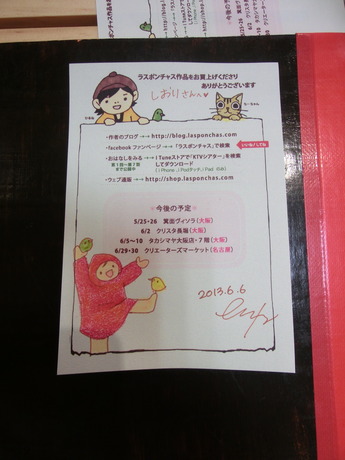 ラスポンチャス作品をお買上げくださり
ありがとうございます
しおりさんへ♥
・作者のブログ →→ http://blog.lasponchas.com
・facebook ファンページ →→「ラスポンチャス」で検索 いいね!してね
・おはなしをみる →→ iTuneストアで「KTVシアター」を検索
してダウンロード
・ウェブ通販 →→ http://shop.lasponchas.com
今後の予定
5/25・26 箕面ヴィソラ(大阪)
6/2 クリスタ長堀(大阪)
6/5〜10 タカシマヤ大阪店・7階(大阪)
6/29・30 クリエーターズマーケット(名古屋)
2013.6.6